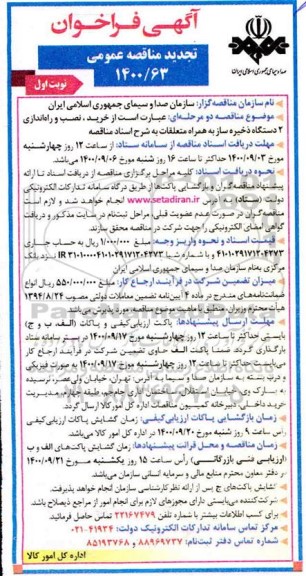 آگهی فراخوان
تجدید مناقصه عمومی
۱۴۰۰/۶۳
صدا و سیمای جمهوری اسلامی ایران
نوبت اول
نام سازمان مناقصه‌گزار: سازمان صدا و سیمای جمهوری اسلامی ایران
موضوع مناقصه دو مرحله‌ای: عبارت است از خرید، نصب و راه‌اندازی
۲ دستگاه ذخیره ساز به همراه متعلقات به شرح اسناد مناقصه
مهلت دریافت اسناد مناقصه از سامانه ستاد: از ساعت ۱۲ روز چهارشنبه
مورخ ۱۴۰۰/۰۹/۰۳ حداکثر تا ساعت ۱۶ روز شنبه مورخ ۱۴۰۰/۰۹/۰۶ می‌باشد.
نحوه دریافت اسناد: کلیه مراحل برگزاری مناقصه از دریافت اسناد تا ارائه
پیشنهاد مناقصه‌گران و بازگشایی پاکت‌ها از طریق درگاه سامانه تدارکات الکترونیکی
دولت (ستاد) به آدرس www.setadiran.ir انجام خواهد شد و لازم است
مناقصه‌گران در صورت عدم عضویت قبلی، مراحل ثبت‌نام در سایت مذکور و دریافت
گواهی امضای الکترونیکی را جهت شرکت در مناقصه محقق سازند.
قیمت اسناد و نحوه واریز وجه: مبلغ ۱/۰۰۰/۰۰۰ ریال به حساب جاری
نزد بانک
مرکزی به‌نام سازمان صدا و سیمای جمهوری اسلامی ایران
میزان تضمین شرکت در فرآیند ارجاع کار: مبلغ ۵۵۰/۰۰۰/۰۰۰ ریال انواع
ضمانت‌نامه‌های مندرج در ماده ۴ آیین‌نامه تضمین معاملات دولتی مصوب ۱۳۹۴/۸/۲۴
هیأت
مهلت ارسال پیشنهادها: پاکت ارزیابی کیفی و پاکات (الف، ب و ج)
بایستی حداکثر تا ساعت ۱۲ روز چهارشنبه مورخ ۱۴۰۰/۰۹/۱۷ در سامانه ستاد
بارگذاری گردد. ضمناً پاکت الف حاوی تضمین شرکت در فرآیند ارجاع کار
بایستی حداکثر تا ساعت ۱۲ روز چهارشنبه مورخ ۱۴۰۰/۰۹/۱۷ به صورت فیزیکی
به سازمان صدا و سیما به آدرس: تهران، خیابان ولی‌عصر، نرسیده
به پارک‌وی، خیابان
خرید داخلی، دبیرخانه کمیسیون مناقصات اداره کل امور کالا ارسال گردد.
زمان بازگشایی پاکات ارزیابی کیفی: زمان گشایش پاکات ارزیابی کیفی
رأس ساعت ۹ روز شنبه مورخ ۱۴۰۰/۰۹/۲۰ در اداره کل امور کالا می‌باشد.
زمان مناقصه و محل قرائت پیشنهادها: زمان گشایش پاکت‌های الف و ب
(ارزیابی فنی بازرگانی) رأس ساعت ۱۵ روز یکشنبه مورخ ۱۴۰۰/۰۹/۲۱
در دفتر معاون محترم منابع مالی و سرمایه انسانی سازمان می‌باشد.
گشایش پاکت‌های ج پس از ارائه نظر کارشناسی سازمان انجام خواهد پذیرفت.
شرکت‌کننده می‌بایستی دارای مجوزهای لازم برای انجام امور از مراجع ذیصلاح باشد.
برای کسب اطلاعات بیشتر با شماره تلفن ۲۲۱۶۷۴۷۹ تماس حاصل فرمائید.
مرکز تماس سامانه تدارکات الکترونیک دولت: ۴۱۹۳۴-۰۲۱
شماره تماس دفتر ثبت‌نام: ۸۸۹۶۹۷۳۷ و ۸۵۱۹۳۷۶۸
اداره کل امور کالا